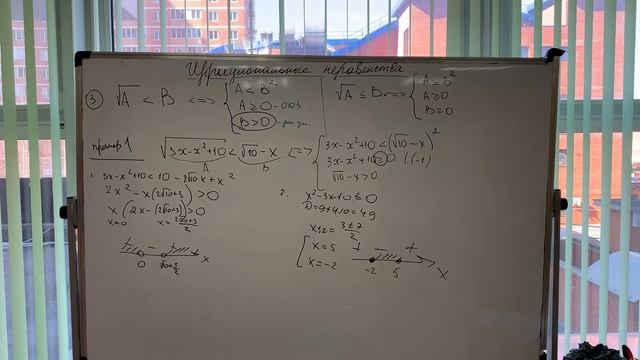 Иррациональные неравенства
③ √A < B <=> { A < B²
A ≥ 0 - ОДЗ
B > 0
√A ≤ B <=> { A ≤ B²
A ≥ 0
B ≥ 0
пример 1 √(3x-x²+10) < √10 - x <=> { 3x - x²+10 < (√10 - x)²
A B
3x - x²+10 ≥ 0 |·(-1)
√10 - x > 0
1. 3x - x²+10 < 10 - 2√10 x + x²
2x² - x(2√10+3) > 0
x(2x - (2√10+3)) > 0
x=0 x = (2√10+3)/2
+ - +
0 x
2. x² - 3x - 10 ≤ 0
D = 9+4·10 = 49
x12 = (3±7)/2
[ x = 5
x = -2
+ - +
-2 5 x